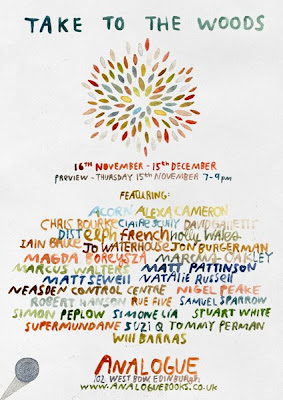 TAKE TO THE WOODS
16TH NOVEMBER - 15TH DECEMBER
PREVIEW - THURSDAY 15TH NOVEMBER 7-9pm
FEATURING:
ACORN ALEXA CAMERON
CHRIS BOURKE CLAIRE SCULLY DAVID GALLETTI
DIST Eleph French HOLLY WALES
IAIN BRUCE JO WATERHOUSE JON BURGERMAN
MAGDA BORCYSZA MARCUS OAKLEY
MARCUS WALTERS MATT PATTINSON
MATT SEWELL NATALIE RUSSELL
NEASDEN CONTROL CENTRE NIGEL PEAKE
ROBERT HANSON RUE FIVE SAMUEL SPARROW
SIMON PEPLOW SIMONE LIA STUART WHITE
SUPERMUNDANE SUZI Q TOMMY PERMAN
WILL BARRAS
ANALOGUE
102 WEST BOW, EDINBURGH
WWW.ANALOGUEBOOKS.CO.UK